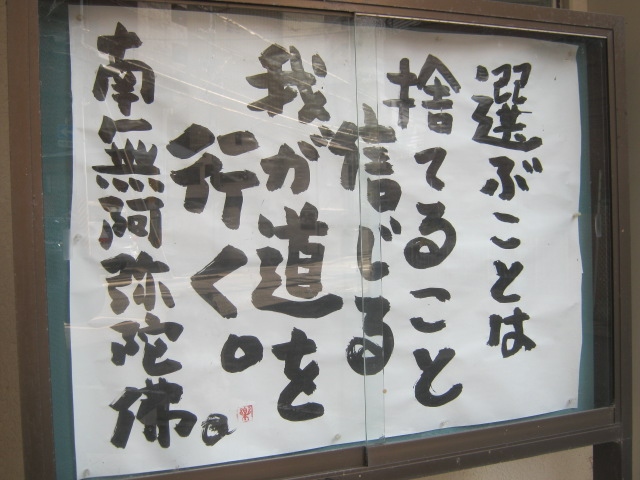 選ぶことは
捨てること
信じる
我が道を
行く。
南無阿弥陀佛。